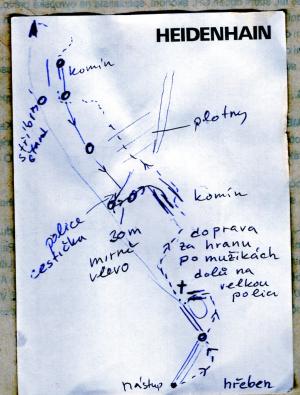 HEIDENHAIN
komín
plotny
komín
police
cestička
30m
mírně
vlevo
doprava
za hranu
po mužikách
dolů na
velkou
polici
nástup
hřeben